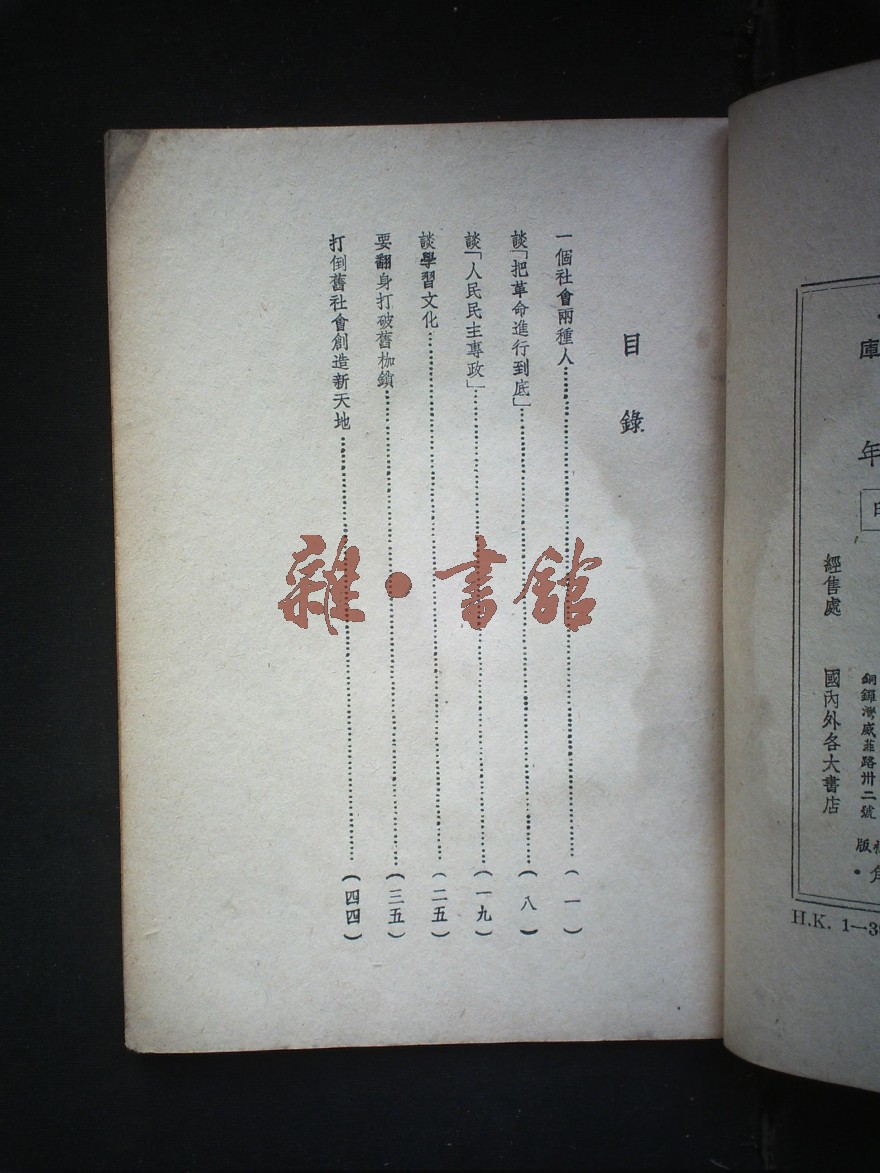 目錄
一個社會兩種人(一)
談「把革命進行到底」(八)
談「人民民主專政」(一九)
談學習文化(二五)
要翻身打破舊枷鎖(三五)
打倒舊社會創造新天地(四四)
雜·書舘
庫
年
經售處 國內外各大書店
銅鑼灣威菲路卅二號
版
H.K. 1—3